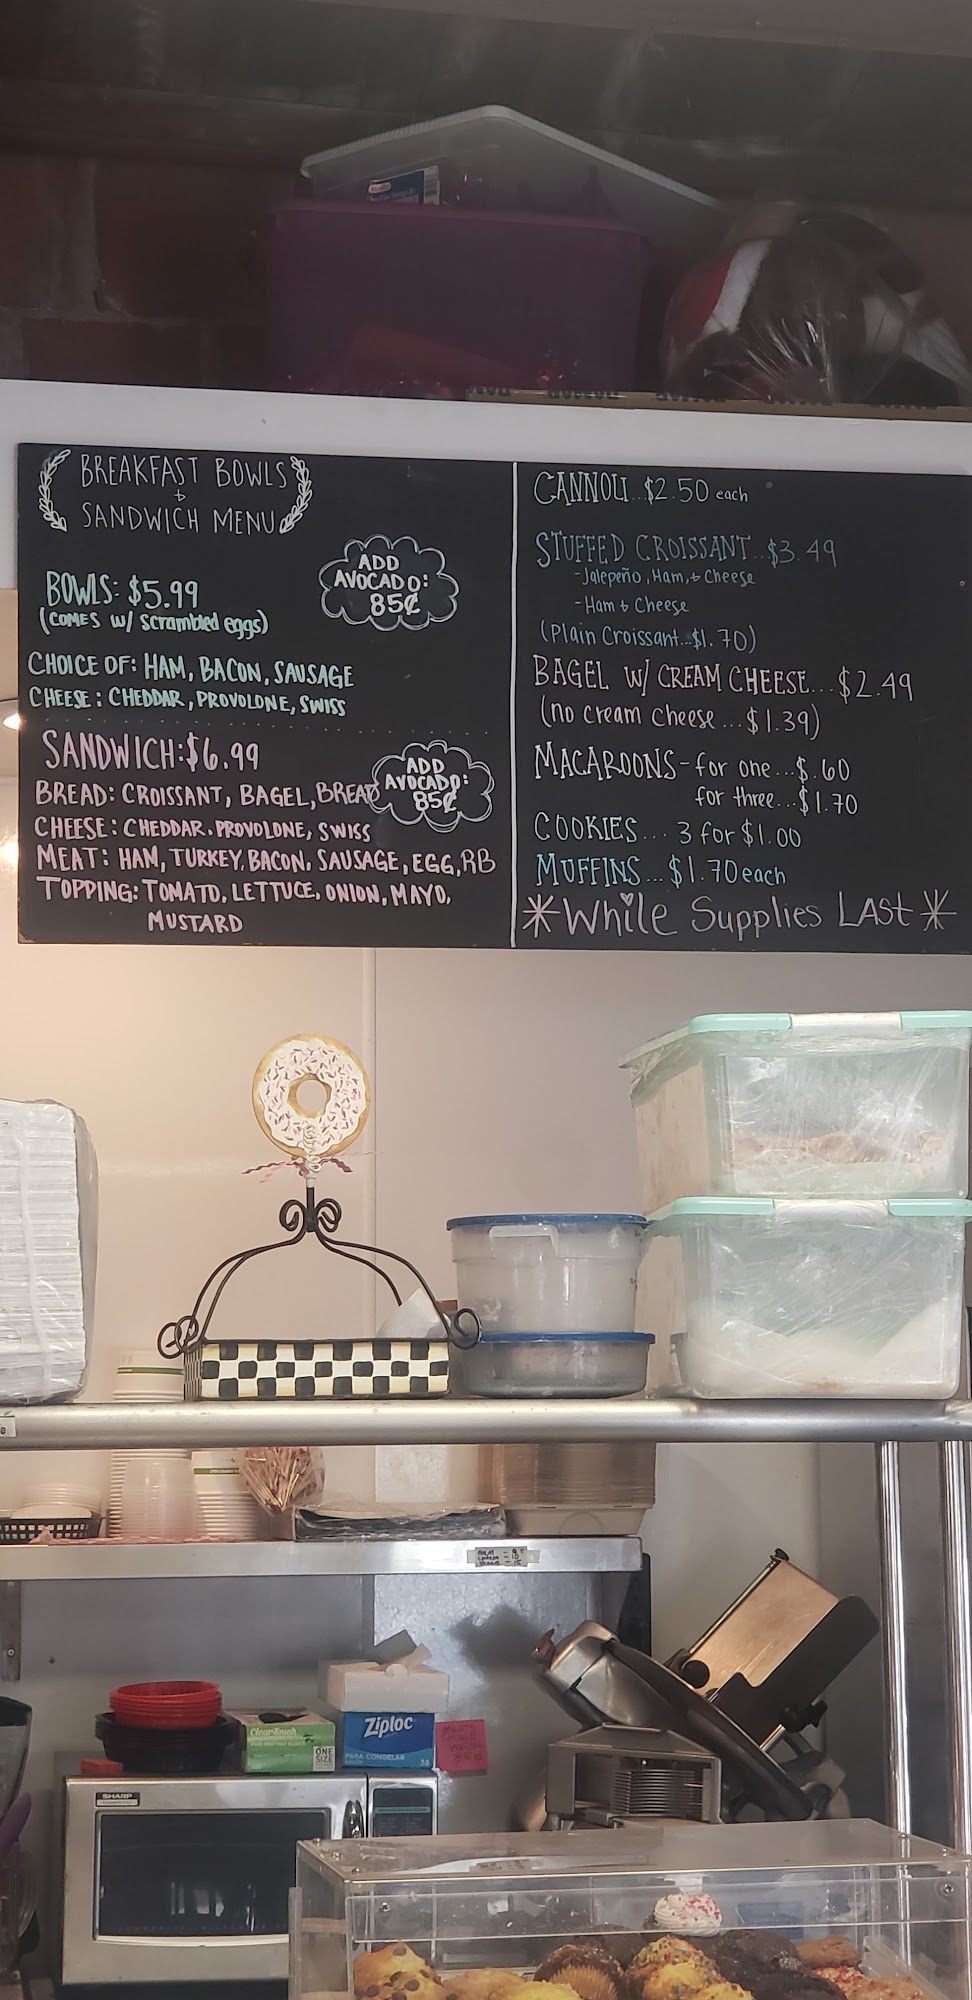 BREAKFAST BOWLS
&
SANDWICH MENU
ADD
AVOCADO:
85¢
BOWLS: $5.99
(COMES W/ Scrambled eggs)
CHOICE OF: HAM, BACON, SAUSAGE
CHEESE: CHEDDAR, PROVOLONE, SWISS
SANDWICH: $6.99
ADD
AVOCADO:
85¢
BREAD: CROISSANT, BAGEL, BREAD
CHEESE: CHEDDAR. PROVOLONE, SWISS
MEAT: HAM, TURKEY, BACON, SAUSAGE, EGG, RB
TOPPING: TOMATO, LETTUCE, ONION, MAYO,
MUSTARD
CANNOLI...$2.50 each
STUFFED CROISSANT...$3.49
-Jalepeño, Ham, & Cheese
-Ham & Cheese
(Plain Croissant...$1.70)
BAGEL W/ CREAM CHEESE...$2.49
(no cream cheese...$1.39)
MACAROONS-for one...$.60
for three...$1.70
COOKIES...3 for $1.00
MUFFINS...$1.70 each
*While Supplies LASt*
ClearTouch
ONE
SIZE
Ziploc
PARA CONGELAR
SHARP